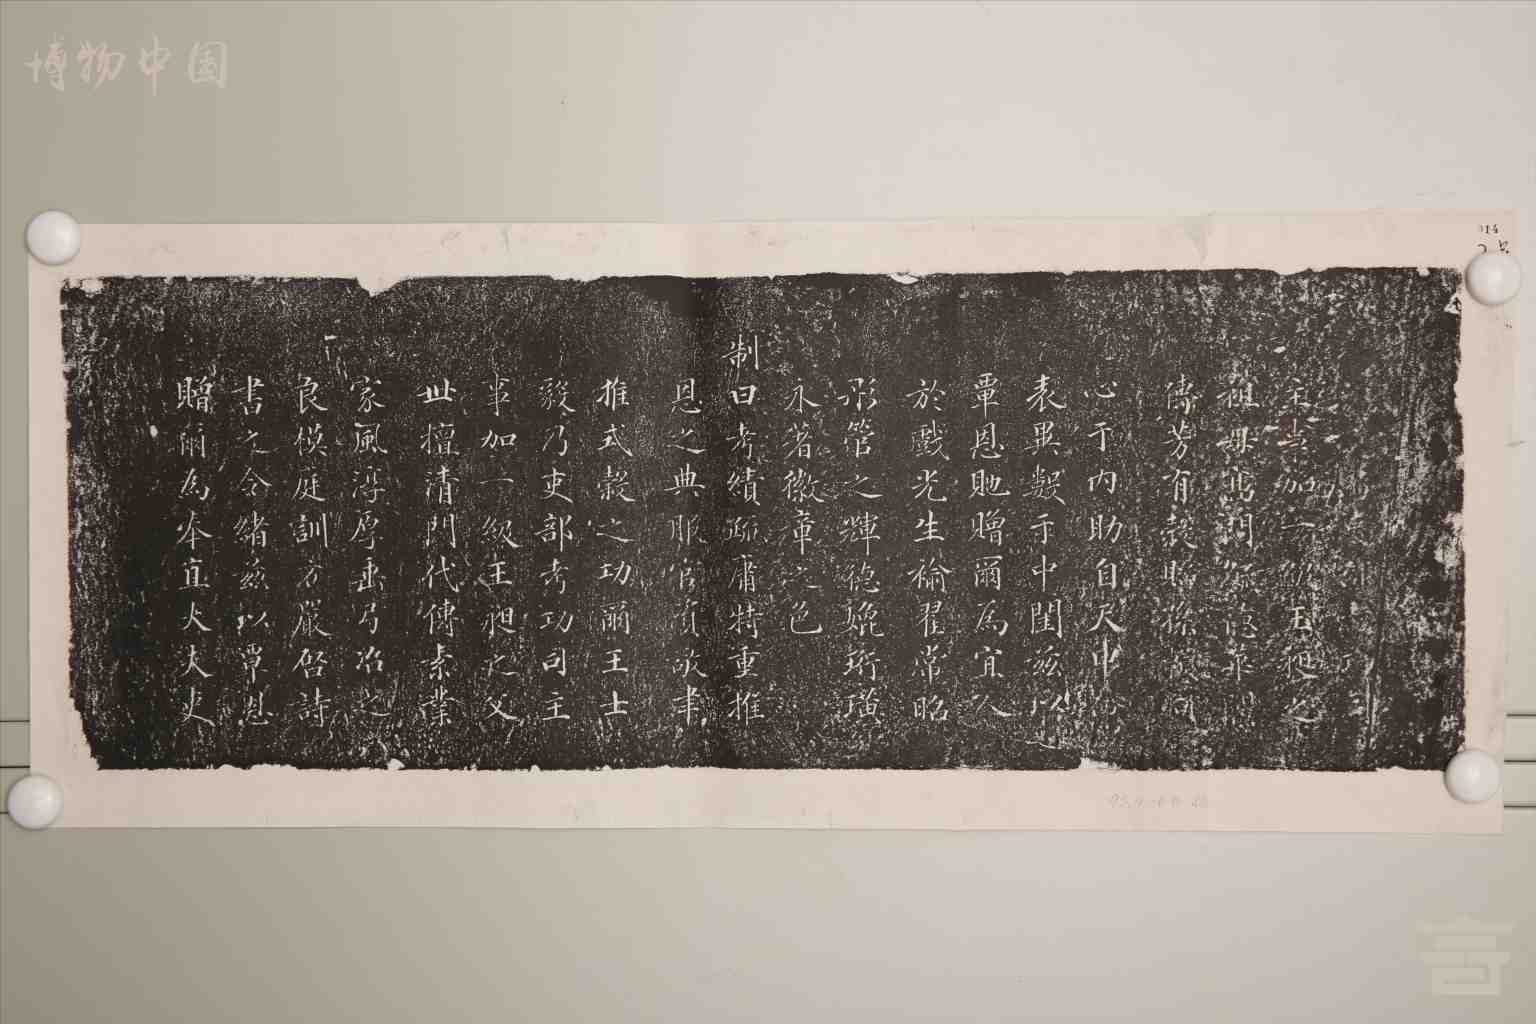 博物中国
主事加一級王昶之
祖母
傳芳有穀
心于内助自天申
表異叙于中閨茲以
覃恩貤贈爾為宜人
於戲光生褕翟常昭
彤管之輝德媲珩璜
永著徽章之色
制曰考績疏庸特重推
恩之典服官資敬聿
推式穀之功爾王士
毅乃吏部考功司主
事加一級王昶之父
世擅清門代傳素業
家風淳厚垂弓冶之
良模庭訓方嚴啓詩
書之令緒茲以覃恩
贈爾為奉直大夫吏